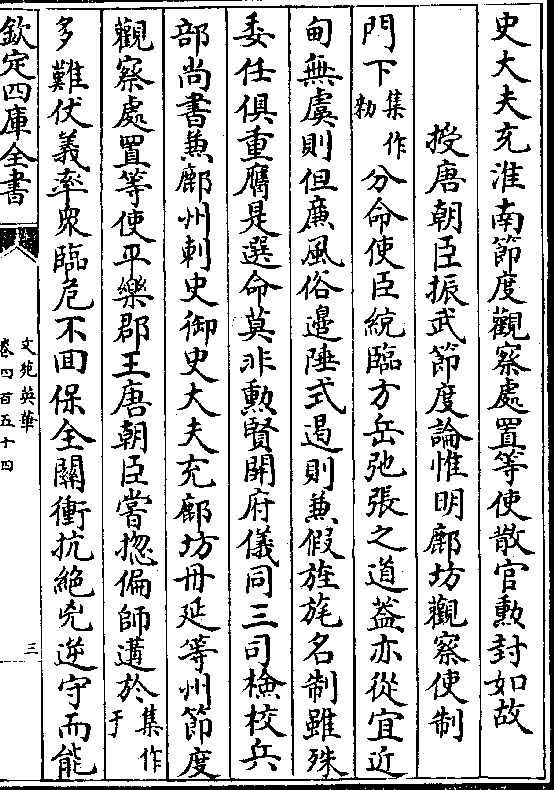 史大夫充淮南節度觀察處置等使散官勲封如故
授唐朝臣振武節度論惟明鄜坊觀察使制
門下集作勑分命使臣統臨方岳弛張之道葢亦從宜近
甸無虞則但㢘風俗邉陲式遏則兼假旌旄名制雖殊
委任俱重膺是選命莫非勲賢開府儀同三司檢校兵
部尚書兼鄜州刺史御史大夫充鄜坊丹延等州節度
觀察處置等使平樂郡王唐朝臣嘗揔偏師遘於集作于
多難伏義率衆臨危不回保全關衝抗絶兇逆守而能
欽定四庫全書
文苑英華
卷四百五十四
三